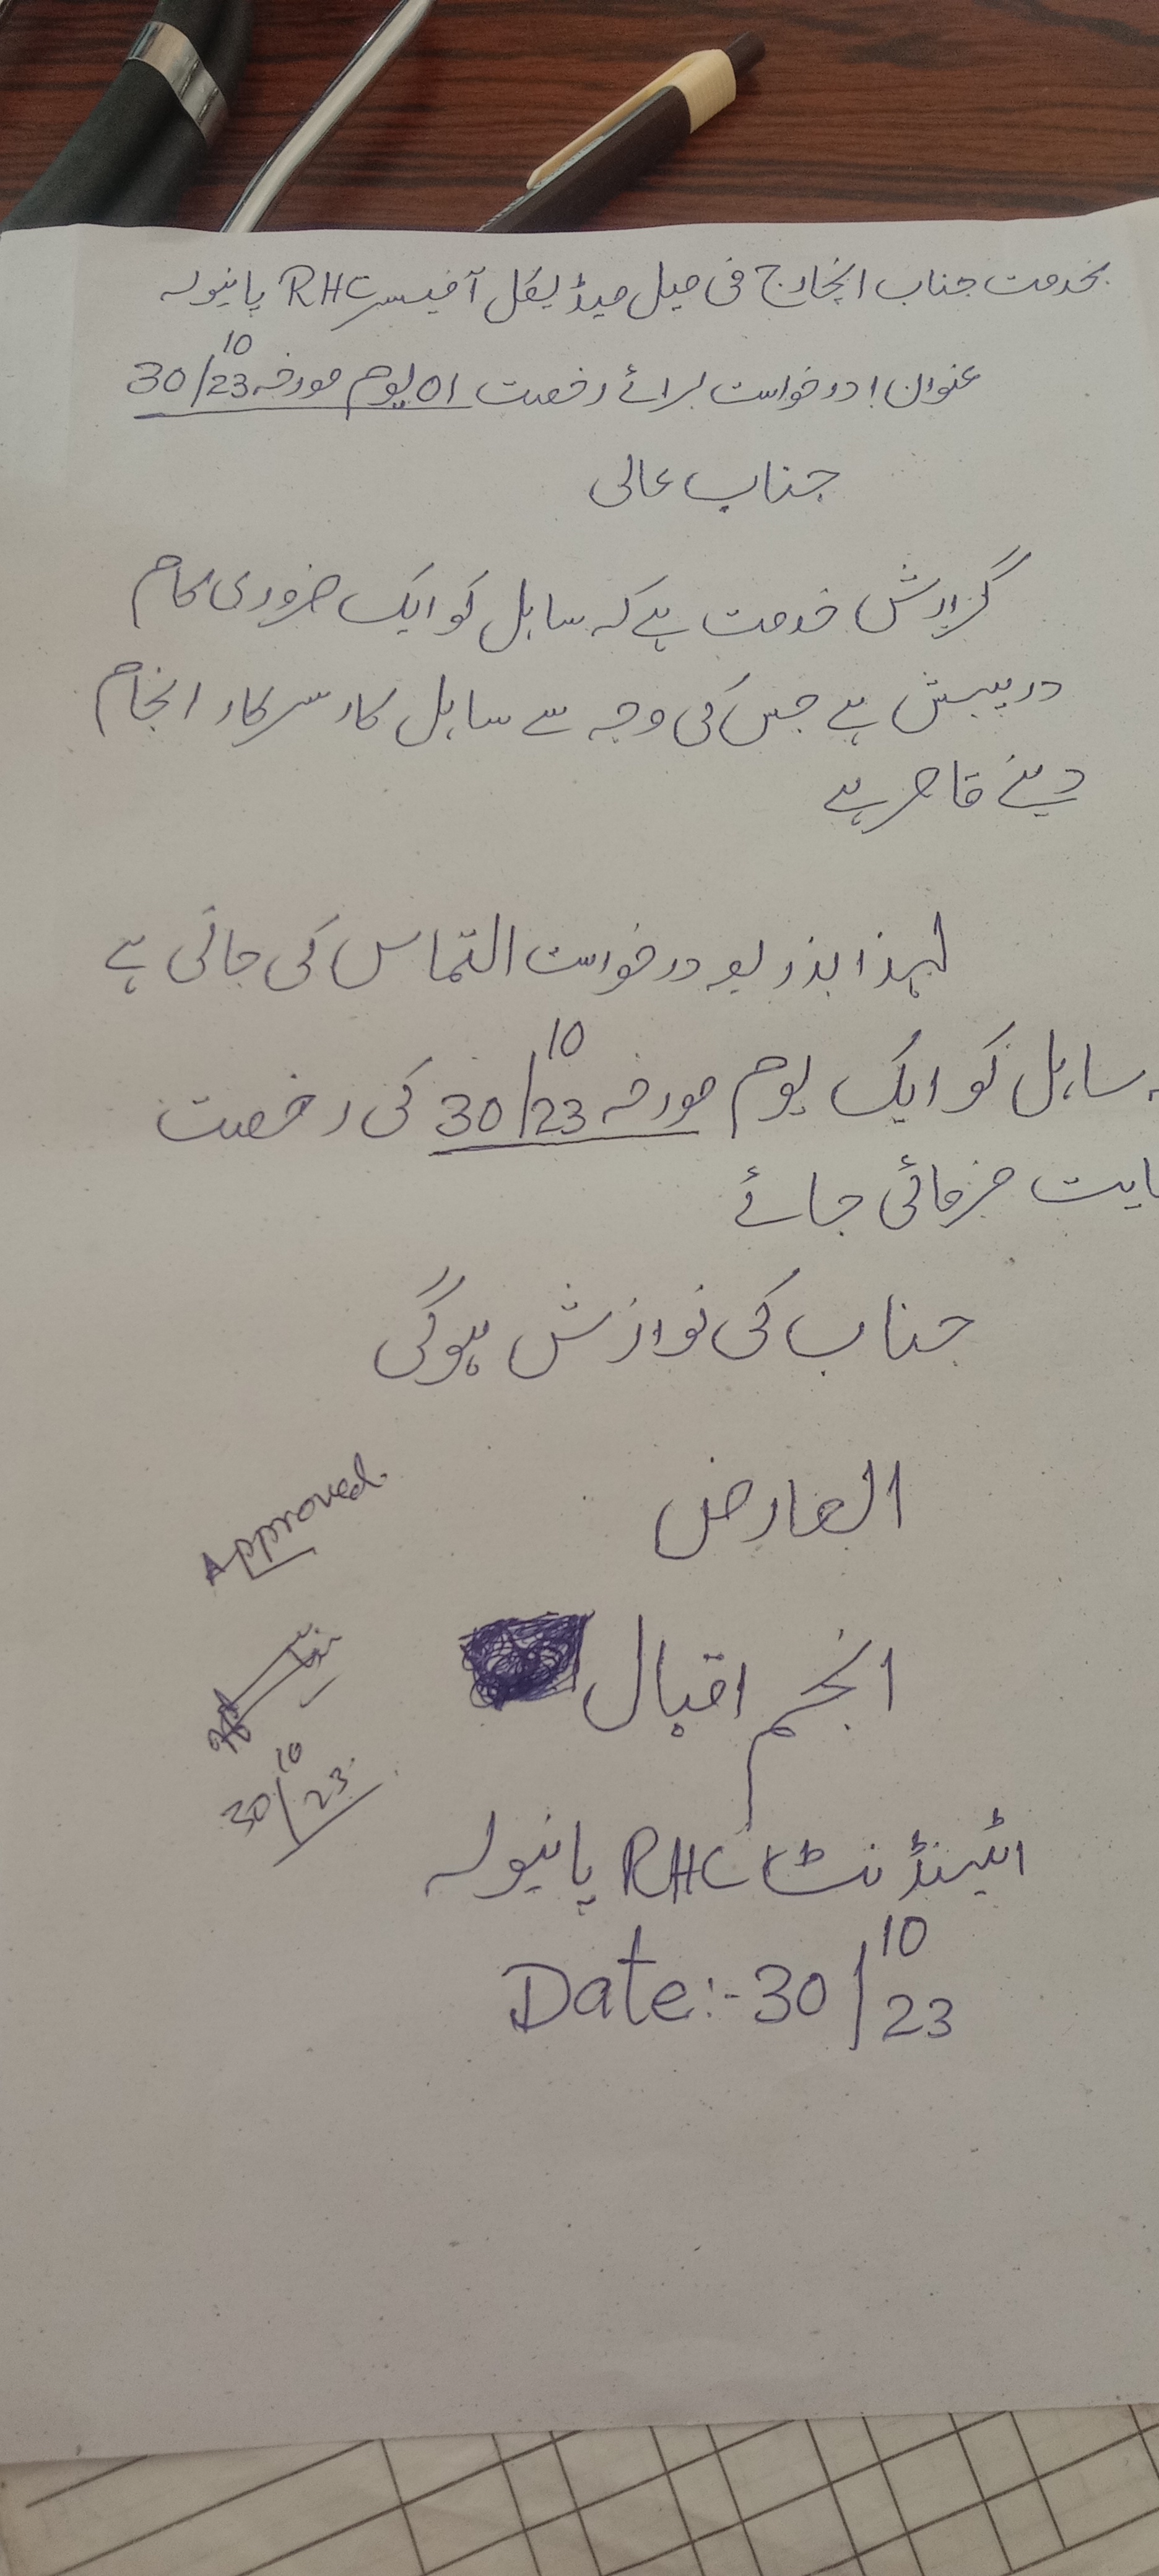 بخدمت جناب انچارج فی میل میڈیکل آفیسر RHC پانیولہ
عنوان ! درخواست برائے رخصت 01 یوم مورخہ 30/10/23
جناب عالی
گزارش خدمت ہے کہ سائل کو ایک ضروری کام
درپیش ہے جس کی وجہ سے سائل کار سرکار انجام
دینے قاصر ہے
لہذا بذریعہ درخواست التماس کی جاتی ہے
سائل کو ایک یوم مورخہ 30/10/23 کی رخصت
فرمائی جائے
جناب کی نوازش ہوگی
العارض
انجم اقبال
اٹینڈنٹ RHC پانیولہ
Date:- 30/10/23
Approved.
30/10/23.